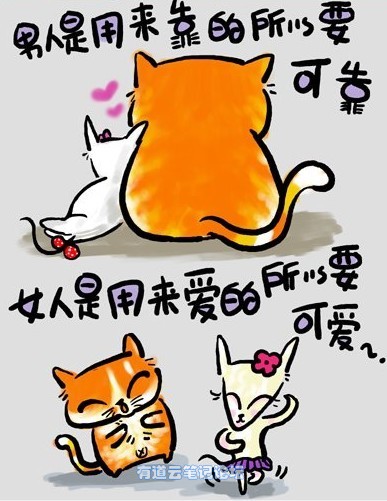 男人是用来靠的所以要
可靠
女人是用来爱的所以要
可爱~.
有道云笔记论坛